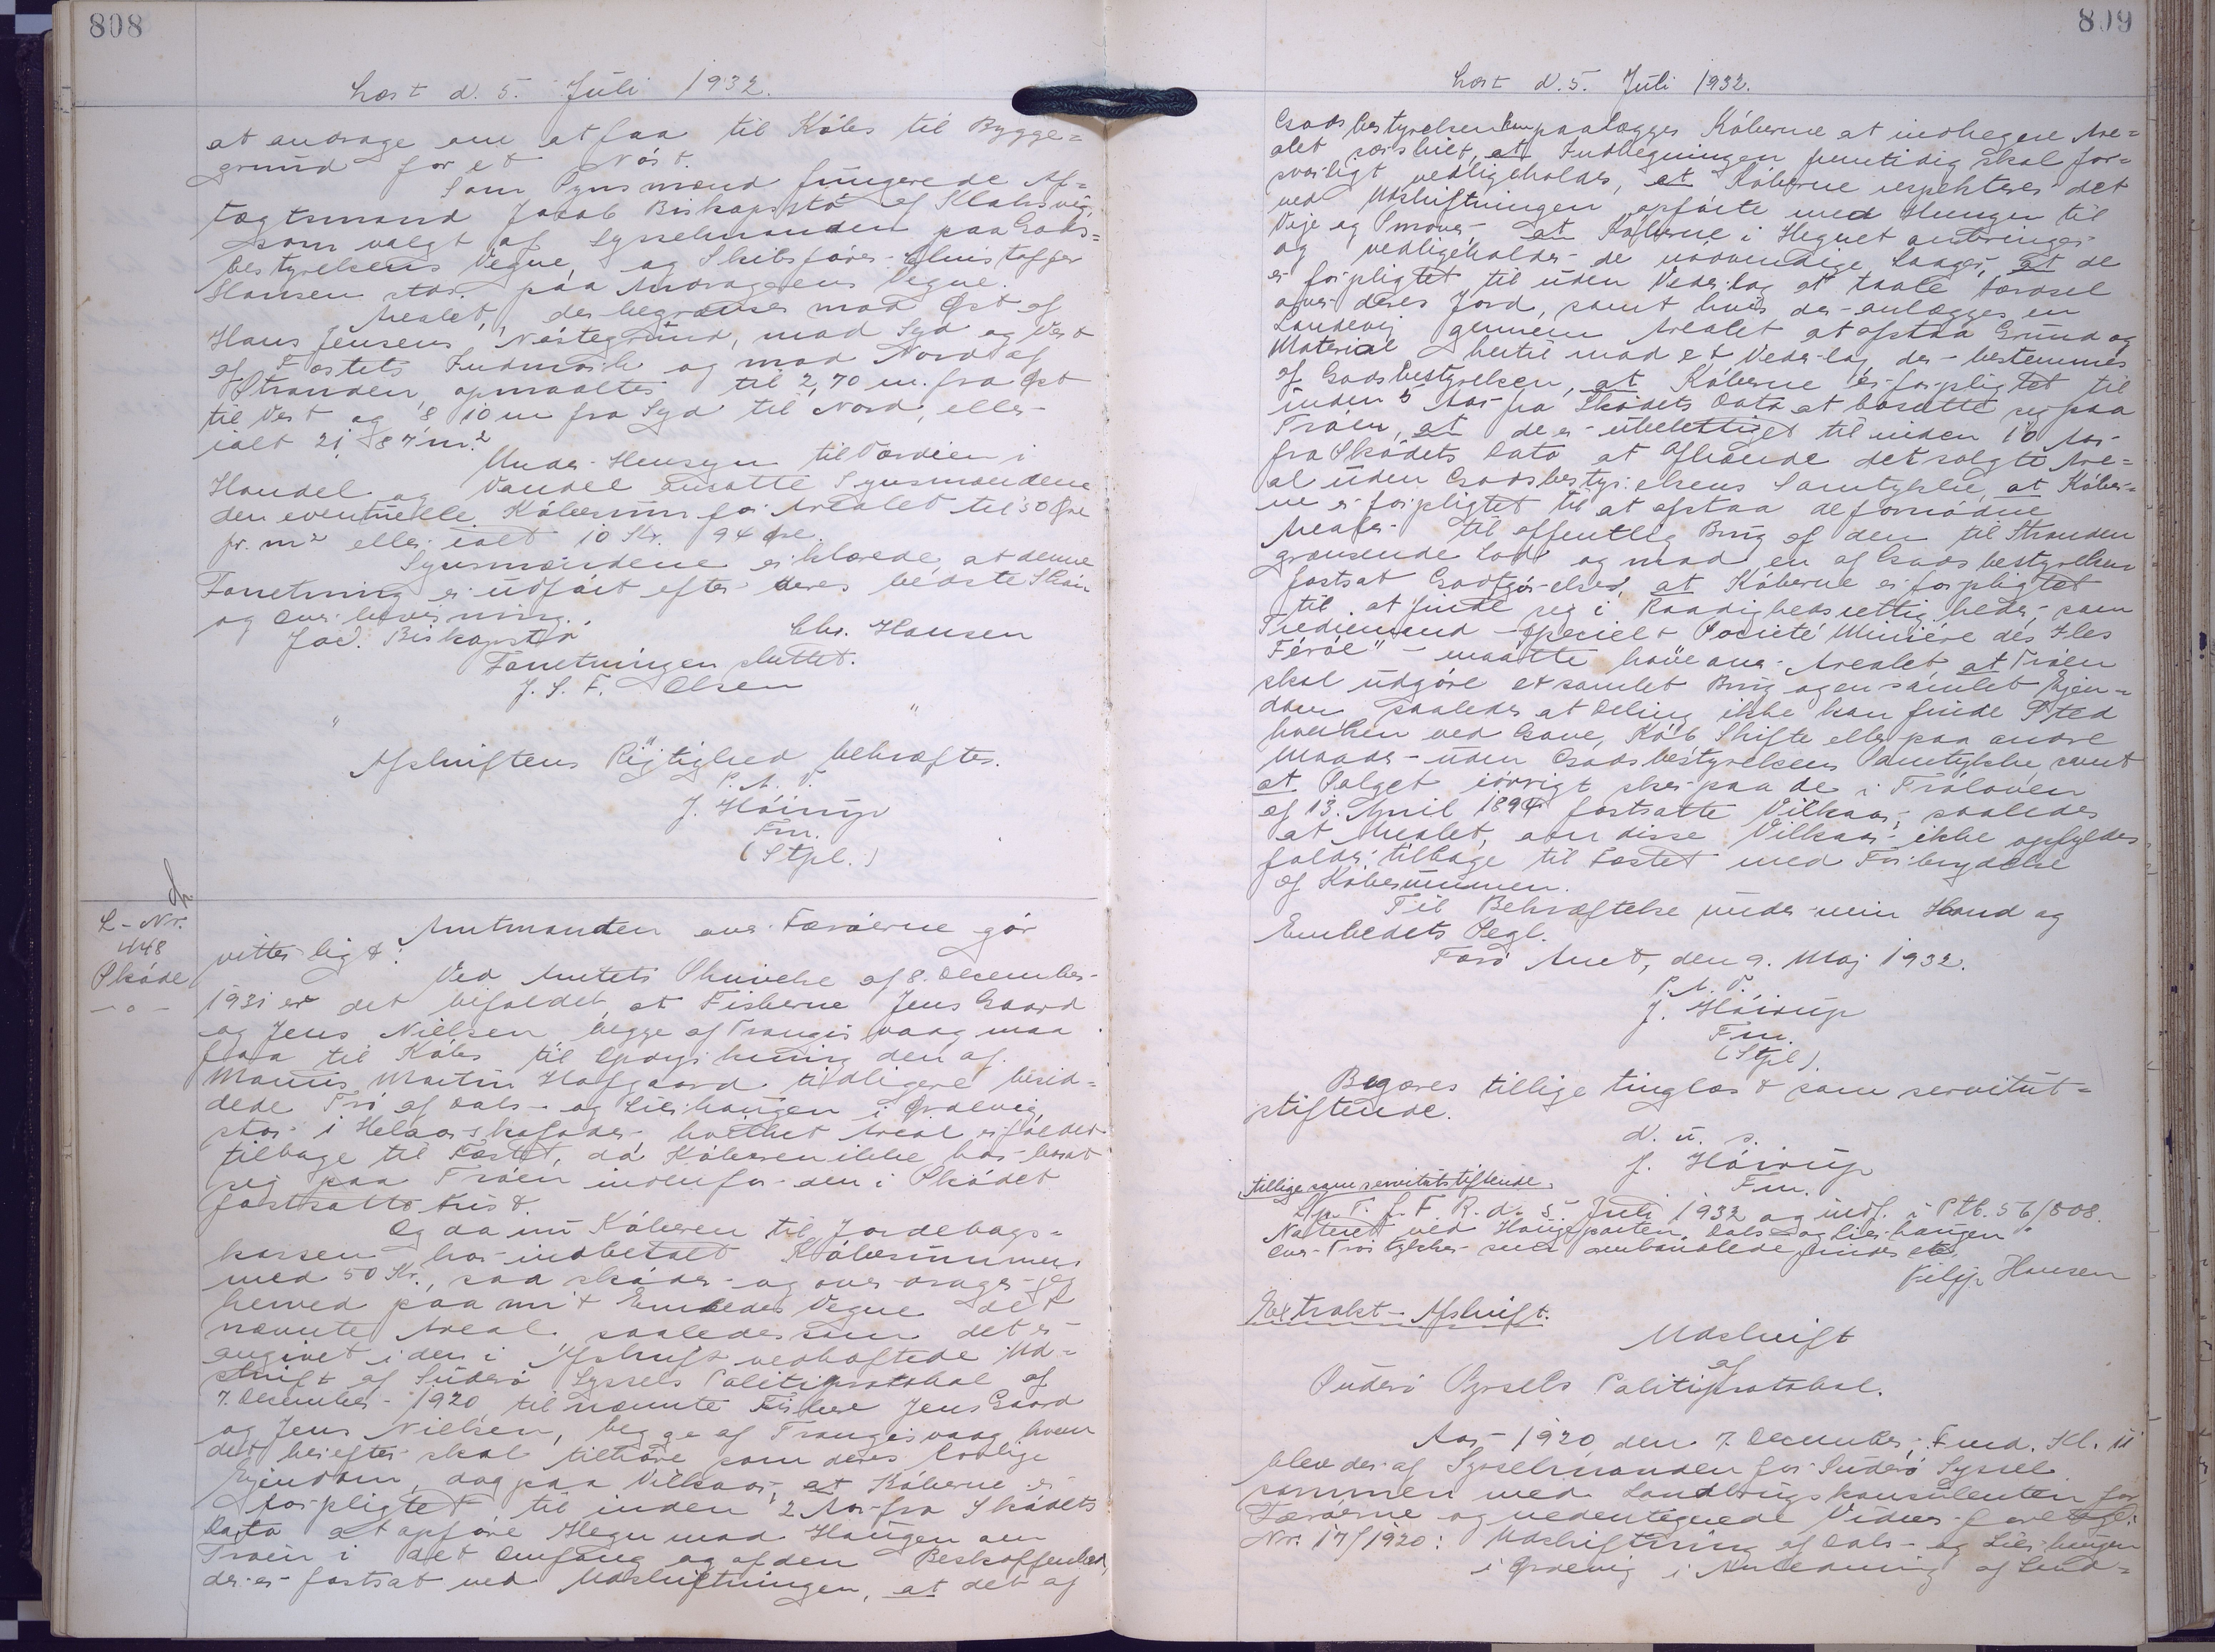 808
Læst d. 5. Juli 1932.
at andrage om at faa til Købs til Bygge=
grund for et Nøst.
Som Synsmænd fungerede Af=
tægtsmand Jacob Biskopstø af Klaksvig,
som valgt af Sysselmanden paa Gods=
bestyrelsens Vegne, og Skibsfører Christoffer
Hansen sstds. paa Andragerens Vegne.
Arealet, der begrænses mod Øst af
Hans Jensens Nøstegrund, mod Syd og Vest
af Fæstets Indmark og mod Nord af
Stranden, opmaaltes til 2,70 m. fra Øst
til Vest og 8,10 m fra Syd til Nord, eller
ialt 21,87 m.²
Under Hensyn til Værdien i
Handel og Vandel ansatte Synsmændene
den eventuelle Købesum for Arealet til 50 Øre
pr. m² eller ialt 10 Kr. 94 Øre.
Synsmændene erklærede, at denne
Forretning er udført efter deres bedste Skøn
og Overbevisning.
Jac. Biskopstø Chr. Hansen
Forretningen sluttet.
J. S. F. Olsen
" " "
Afskriftens Rigtighed bekræftes.
P. A. V.
J. Høirup
Fm.
(Stpl.)
L-Nr.
448
Skøde
-o-
Amtmanden over Færøerne gør
vitterligt:
Ved Amtets Skrivelse af 8. December
1931 er det bifaldet, at Fiskerne Jens Gaard
og Jens Nielsen, begge af Trangisvaag maa
faa til Købs til Opdyrkning den af
Martin Hofgaard tidligere besid=
dede Trø af Dals- og Lierhaugen i Ørdevig,
stor i Helaarskofoder, hvilket Areal er faldet
tilbage til Fæstet, da Køberen ikke har bosat
sig paa Trøen indenfor den i Skødet
fastsatte Frist.
Og da nu Køberen til Jordebogs=
kassen har indbetalt Købesummen
med 50 Kr., saa skøder og overdrager jeg
herved paa mit Embedes Vegne det
nævnte Areal saaledes som det er
angivet i den i Afskrift vedhæftede Ud=
skrift af Suderø Syssels Politiprotokol af
7. December 1920 til nævnte Fiskere Jens Gaard
og Jens Nielsen, begge af Trangisvaag, hvem
det herefter skal tilhøre som deres lovlige
Ejendom, dog paa Vilkaar, at Køberne er
forpligtet til inden 2 Aar fra Skødets
Dato at opføre Hegn mod Haugen om
Trøen i det Omfang og af den Beskaffenhed,
der er fastsat ved Udskiftningen, at det af
809
Læst d. 5. Juli 1932.
Godsbestyrelsen kan paalægges Køberne at indhegne Are=
alet særskilt, at Indhegningen fremtidig skal for=
svarligt vedligeholdes, at Køberne respekterer det
ved Udskiftningen opførte med Hensyn til
Veje og Smøver, at Køberne i Hegnet anbringer
og vedligeholder de nødvendige Laager, at de
er forpligtet til uden Vederlag at taale Færdsel
over deres Jord, samt hvis der anlægges en
Landevej gennem Arealet at afstaa Grund og
Material hertil mod et Vederlag, der bestemmes
af Godsbestyrelsen, at Køberne er forpligtet til
inden 5 Aar fra Skødets Dato at bosætte sig paa
Trøen, at de er uberettiget til inden 10 Aar
fra Skødets Dato at afhænde det solgte Are=
al uden Godsbestyrelsens Samtykke, at Køber=
ne er forpligtet til at afstaa de fornødne
Arealer til offentlig Brug af den til Stranden
grænsende Lod og mod en af Godsbestyrelsen
fastsat Godtgørelse, at Køberne er forpligtet
til at finde sig i Raadighedsrettigheder, som
Trediemand - specielt "Societé Minière des Iles
Féroé" - maatte have over Arealet, at Trøen
skal udgøre et samlet Brug og en samlet Ejen=
dom saaledes at Deling ikke kan finde Sted
hverken ved Gave, Køb, Skifte eller paa anden
Maade uden Godsbestyrelsens Samtykke, samt
at Salget iøvrigt sker paa de i Trøloven
af 13. April 1894 fastsatte Vilkaar, saaledes
at Arealet, om disse Vilkaar ikke opfyldes,
falder tilbage til Fæstet med Fortrydelse
af Købesummen.
Til Bekræftelse under min Haand og
Embedets Segl.
Færø Amt, den 9. Maj 1932.
P. A. V.
J. Høirup
Fm.
(Stpl.)
Begæres tillige tinglæst som servitut=
stiftende.
d. u. s.
J. Høirup
Fm.
tillige som servitutstiftende.
Lyst T. f. F. R. d. 5 Juli 1932 og indf. i Ptb. 56/808.
Noteret ved Haugeparten "Dals- og Lierhaugen".
Over Trøstykkes
Filip Hansen
Extrakt-Afskrift.
Udskrift
af
Suderø Syssels Politiprotokol.
Aar 1920, den 7. December, Fmd. Kl. 11
blev der af Sysselmanden for Suderø Syssel
sammen med Landbrugskonsulenten for
Færøerne og nedentegnede Vidner foretaget:
Nr. 17/1920: Udskiftning af Dals- og Lierhaugen
i Ørdevig i Anledning af Lund=